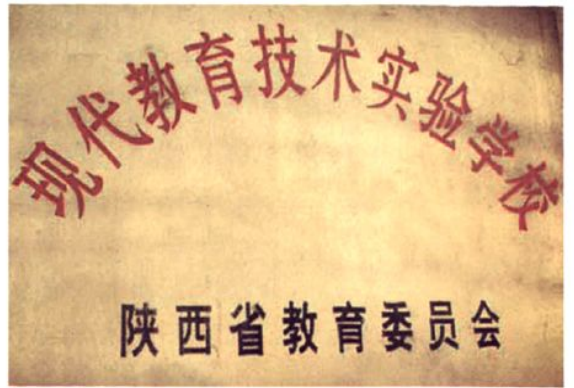 现代教育技术实验学校
陕西省教育委员会